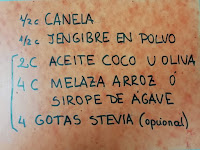 1/2c CANELA
1/2c JENGIBRE EN POLVO
2C ACEITE COCO U OLIVA
4 C MELAZA ARROZ Ó
SIROPE DE ÁGAVE
4 GOTAS STEVIA (opcional)